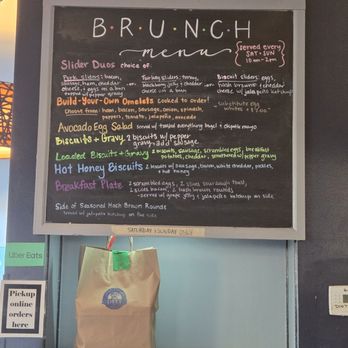 BRUNCH
menu
served every
SAT + SUN
10am - 2pm
Slider Duos choice of:
Pork sliders: bacon, Turkey sliders: turkey, Biscuit sliders: eggs,
sausage, ham, cheddar blackberry jelly + cheddar hash brown + cheddar
cheese + eggs on a bun cheese on a bun w/ jalapeño ketchup
topped w/ pepper gravy
Build-Your-Own Omelets cooked to order!
Choose from: ham, bacon, sausage, onion, spinach, substitute egg
peppers, tomato, jalapeño, avocado whites +
Avocado Egg Salad served w/ toasted everything bagel + chipotle mayo
Biscuits + Gravy 2 biscuits w/ pepper
gravy - add sausage
Loaded Biscuits + Gravy 2 biscuits, sausage, scrambled eggs, breakfast
potatoes, cheddar, smothered w/ pepper gravy
Hot Honey Biscuits 2 biscuits w/ sausage, bacon, white cheddar, pickles,
+ hot honey
Breakfast Plate 2 scrambled eggs, 2 slices sourdough toast,
2 slices bacon, 2 hash brown rounds
- served w/ grape jelly + jalapeño ketchup on side
Side of Seasoned Hash Brown Rounds
served w/ jalapeño ketchup on the side
SATURDAY + SUNDAY ONLY
Uber Eats
Pickup
online
orders
here